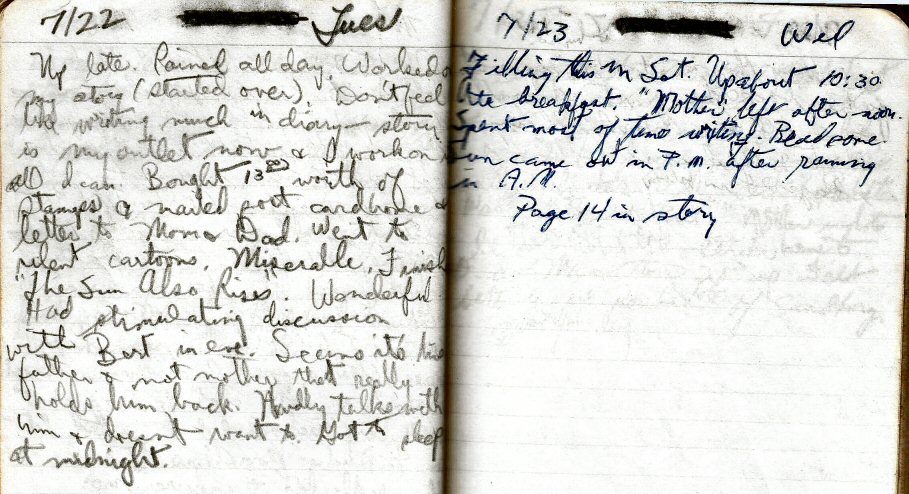 7/22 Tues
Up late. Rained all day. Worked o
my story (started over). Don't feel
like writing much in diary - story
is my outlet now & I work on
all I can. Bought 13⁰⁰ worth of
stamps & mailed post card home &
letter to Mom & Dad. Went to
silent cartoons. Miserable. Finish
"The Sun Also Rises". Wonderful.
Had stimulating discussion
with Bert in eve. Seems it's his
father & not mother that really
holds him back. Hardly talks with
him & doesn't want to. Got to sleep
at midnight.
7/23 Wed
Filling this in Sat. Up about 10:30
late breakfast. "Mother" left after noon.
Spent most of time writing. Read some.
Sun came out in P.M. after raining
in A.M.
Page 14 in story